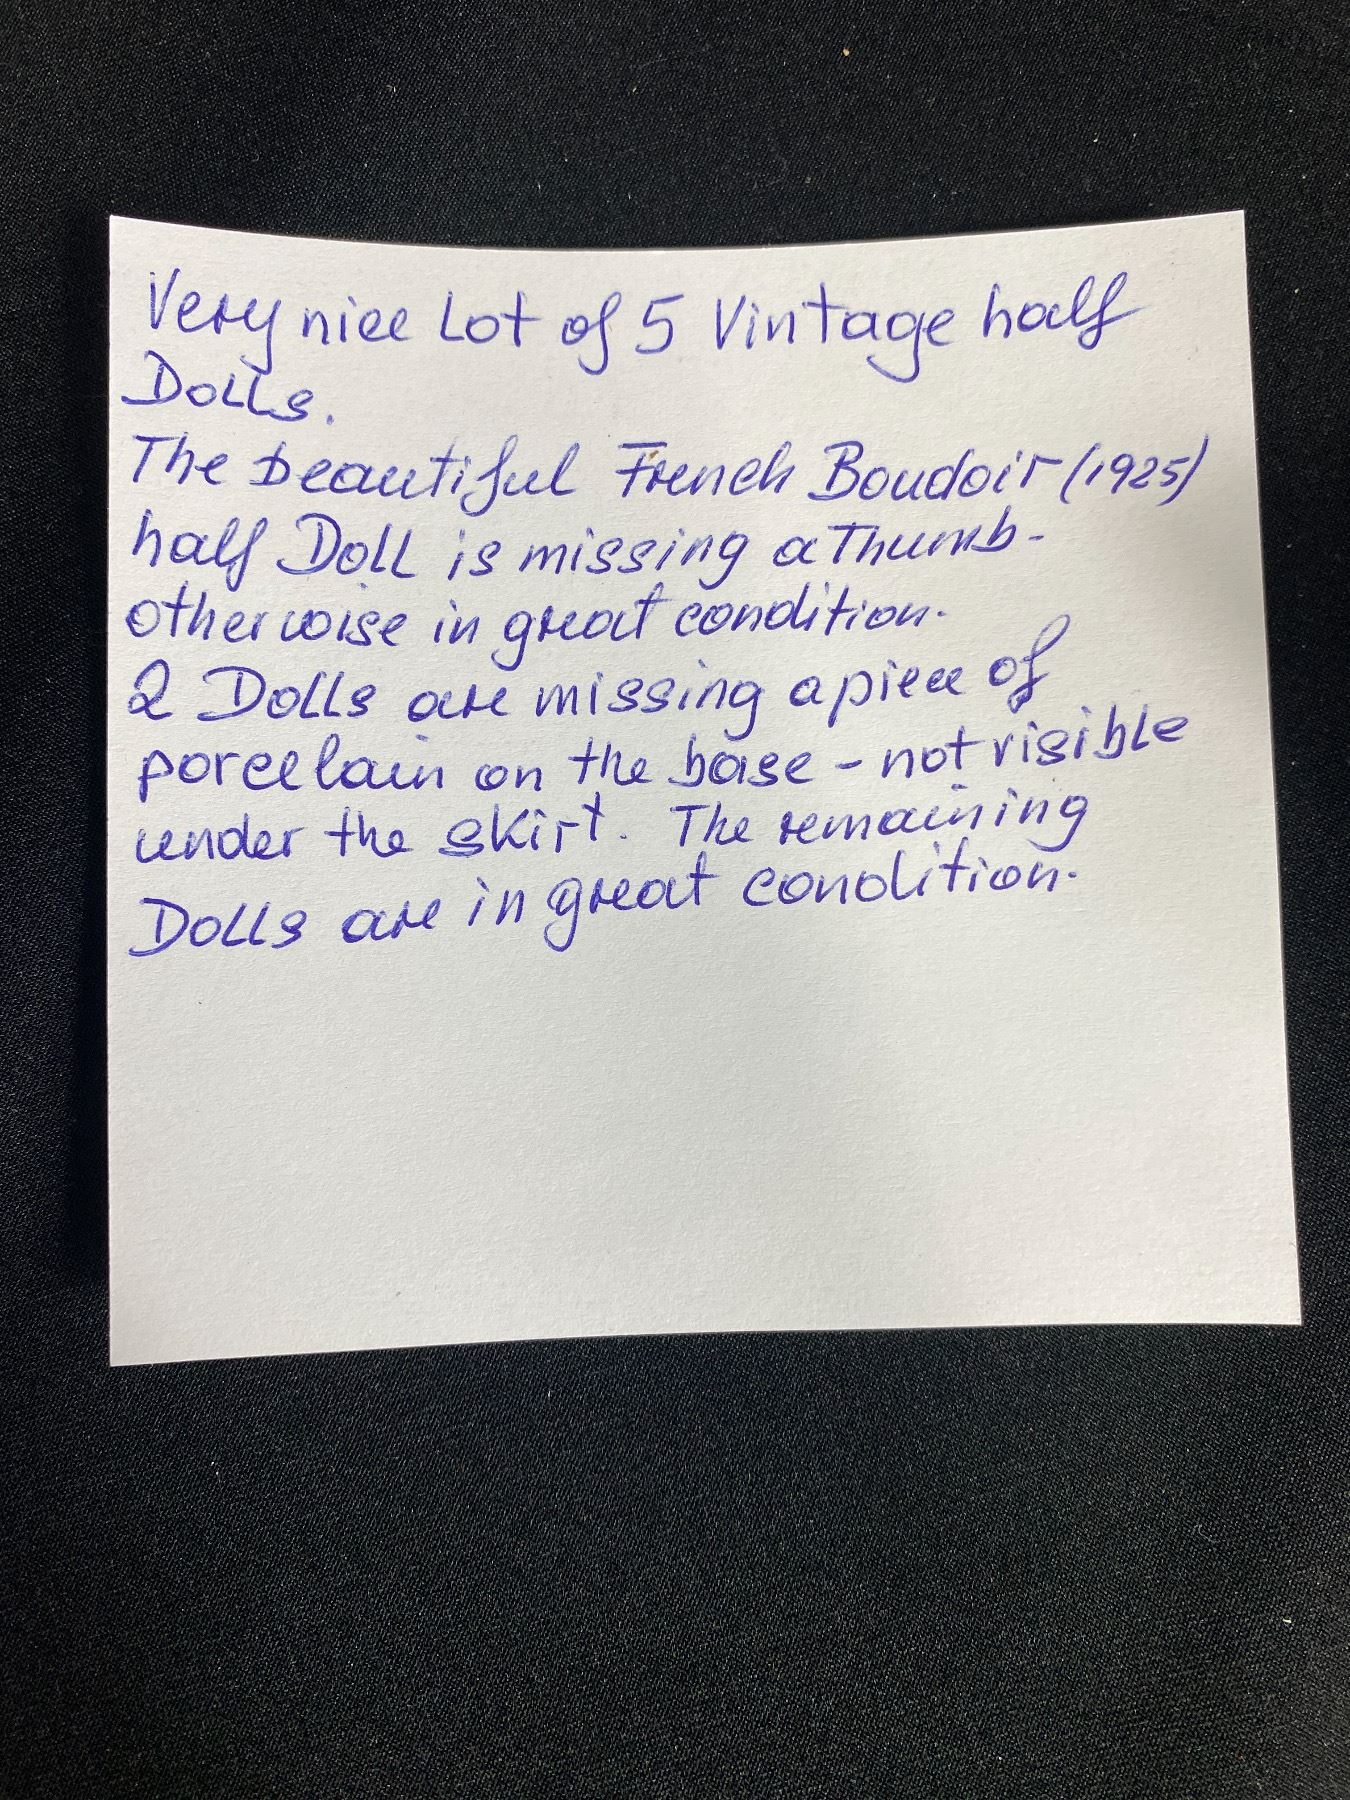 Very nice Lot of 5 Vintage half
Dolls.
The beautiful French Boudoir (1925)
half Doll is missing a Thumb-
otherwise in great condition.
2 Dolls are missing a piece of
porcelain on the base - not visible
under the skirt. The remaining
Dolls are in great condition.